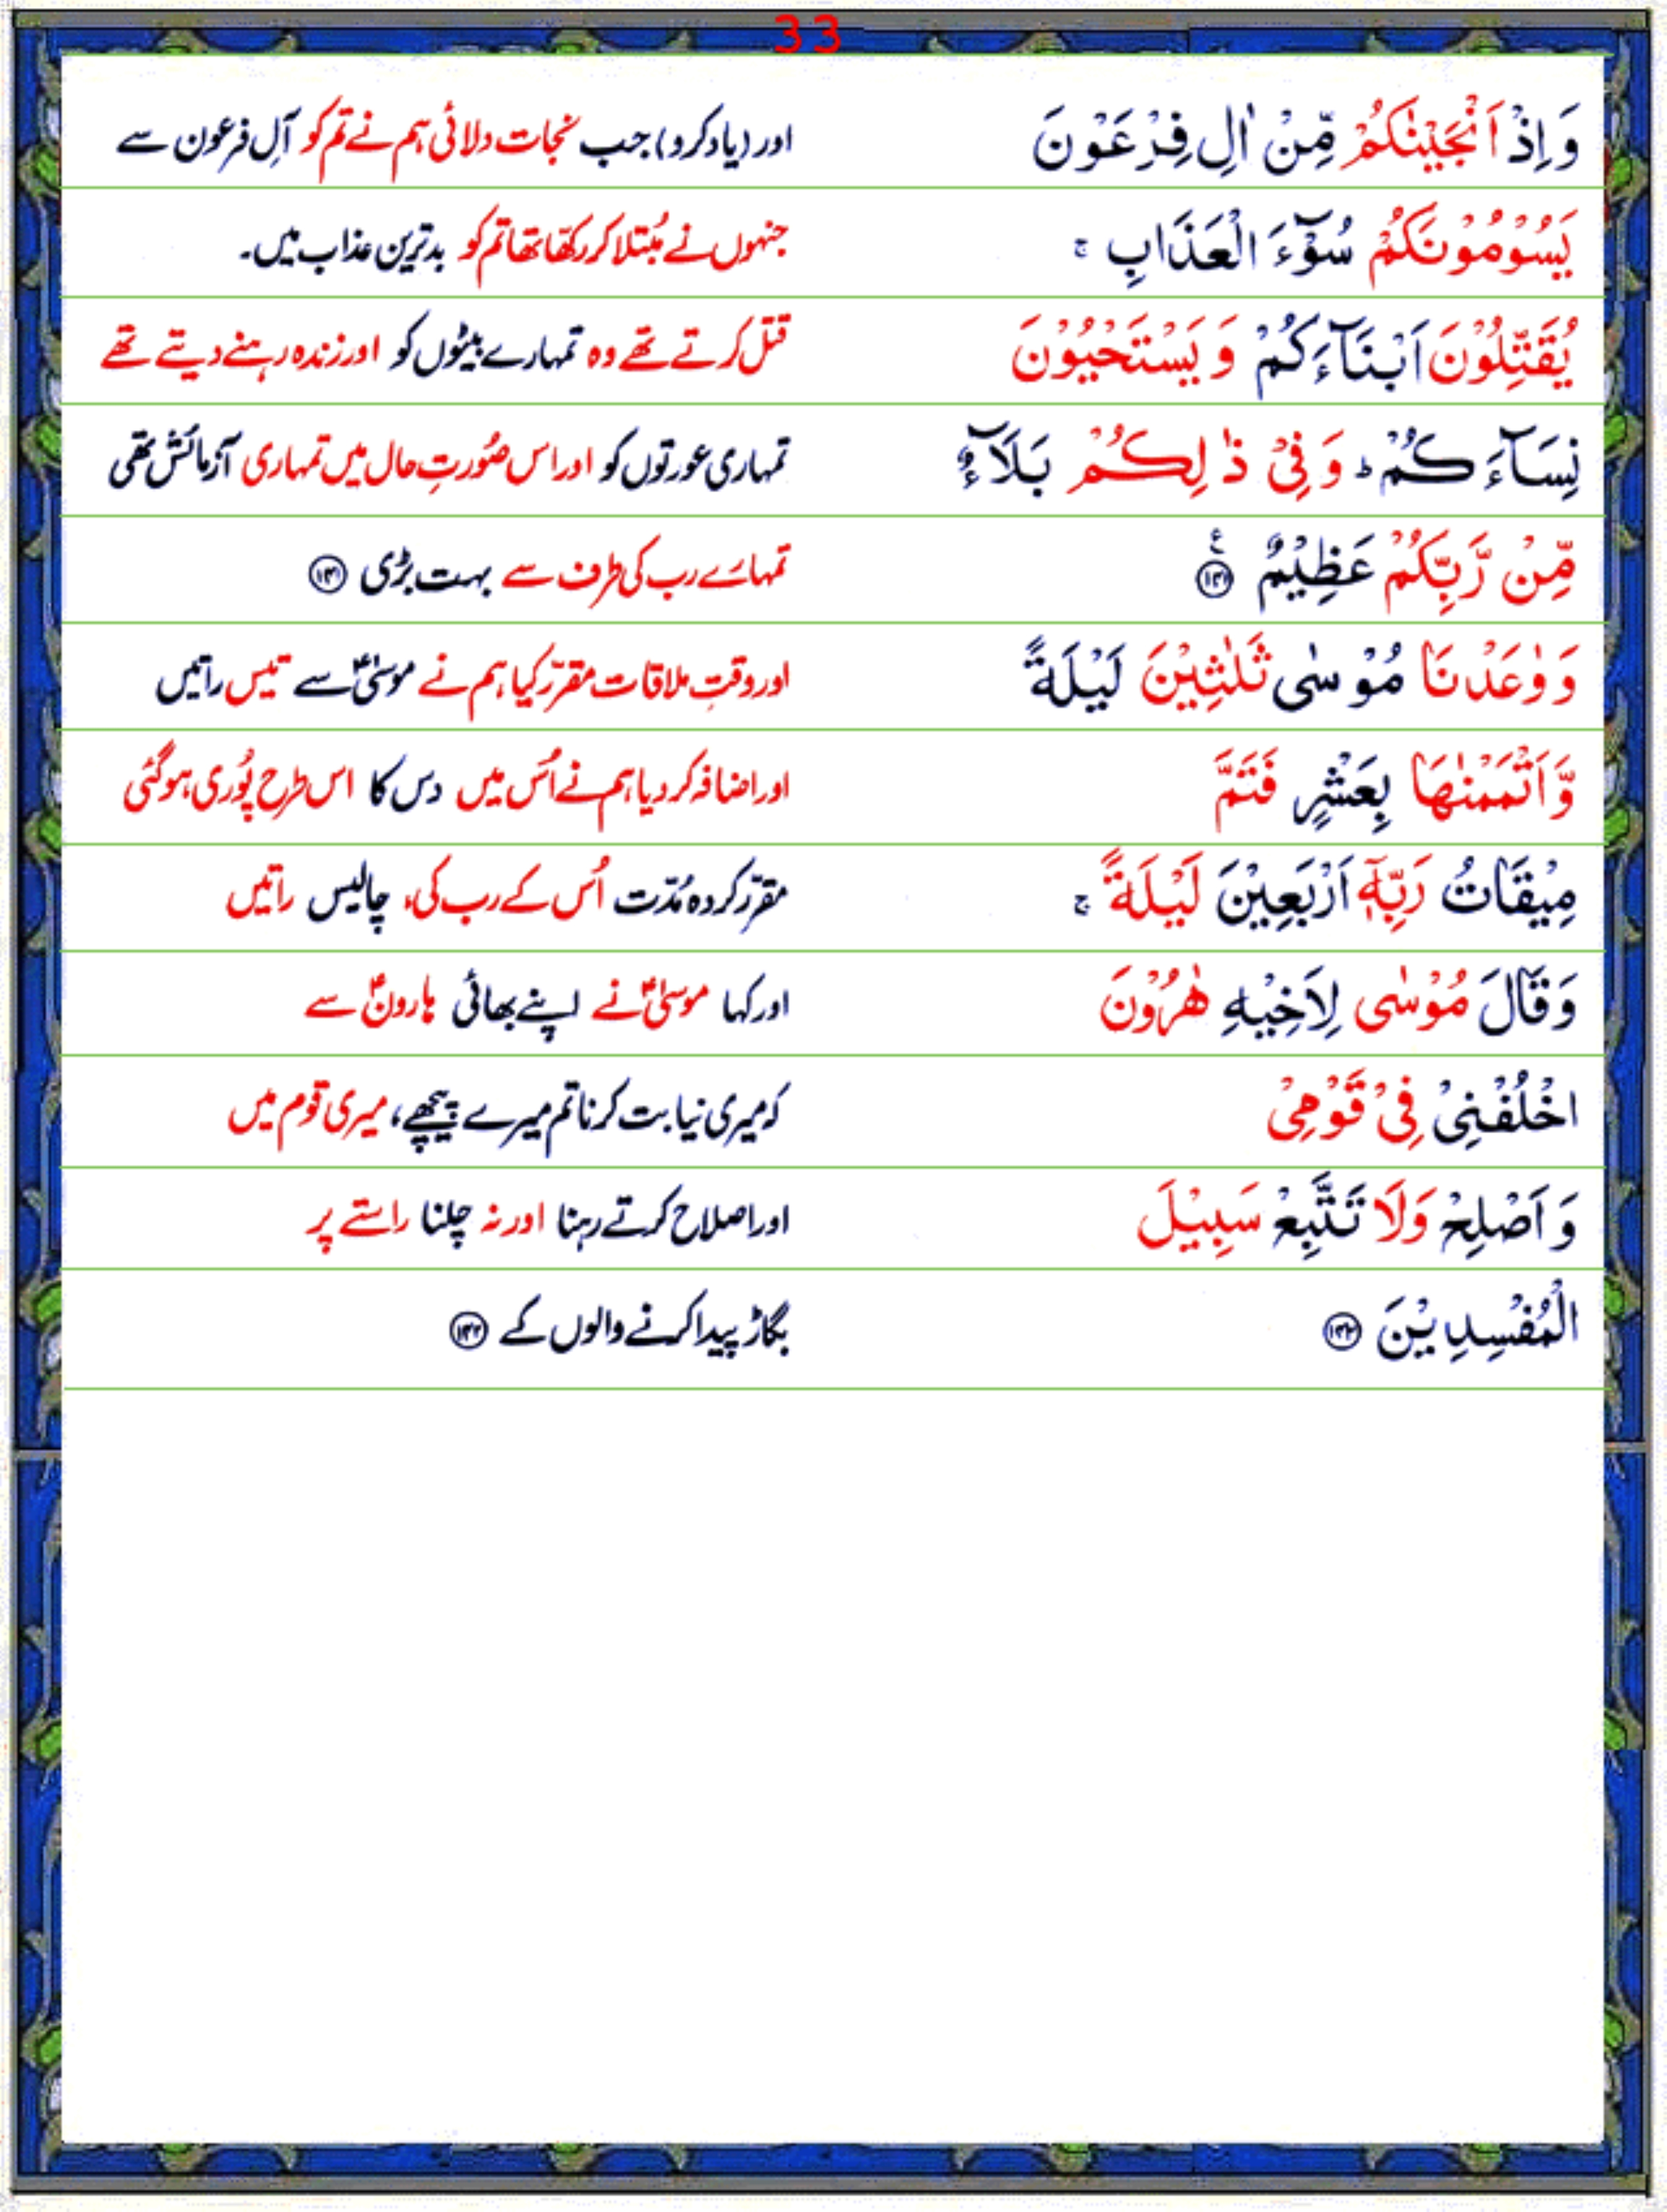 33
وَاِذْ اَنْجَيْنٰكُمْ مِّنْ اٰلِ فِرْعَوْنَ اور (یاد کرو) جب نجات دلائی ہم نے تم کو آلِ فرعون سے
يَسُوْمُوْنَكُمْ سُوْٓءَ الْعَذَابِ ۚ جنہوں نے مُبتلا کر رکھّا تھا تم کو بدترین عذاب میں۔
يُقَتِّلُوْنَ اَبْنَآءَكُمْ وَيَسْتَحْيُوْنَ قتل کرتے تھے وہ تمہارے بیٹوں کو اور زندہ رہنے دیتے تھے
نِسَآءَكُمْ ؕ وَفِيْ ذٰلِكُمْ بَلَآءٌ تمہاری عورتوں کو اور اس صُورتِ حال میں تمہاری آزمائش تھی
مِّنْ رَّبِّكُمْ عَظِيْمٌ ۱۴۱ تمہارے رب کی طرف سے بہت بڑی ۱۴۱
وَوٰعَدْنَا مُوْسٰى ثَلٰثِيْنَ لَيْلَةً اور وقتِ ملاقات مقرّر کیا ہم نے موسٰیؑ سے تیس راتیں
وَّاَتْمَمْنٰهَا بِعَشْرٍ فَتَمَّ اور اضافہ کر دیا ہم نے اُس میں دس کا اس طرح پُوری ہوگئی
مِيْقَاتُ رَبِّهٖٓ اَرْبَعِيْنَ لَيْلَةً ۚ مقرّر کردہ مُدّت اُس کے رب کی، چالیس راتیں
وَقَالَ مُوْسٰى لِاَخِيْهِ هٰرُوْنَ اور کہا موسٰیؑ نے اپنے بھائی ہارونؑ سے
اخْلُفْنِيْ فِيْ قَوْمِيْ کہ میری نیابت کرنا تم میرے پیچھے، میری قوم میں
وَاَصْلِحْ وَلَا تَتَّبِعْ سَبِيْلَ اور اصلاح کرتے رہنا اور نہ چلنا راستے پر
الْمُفْسِدِيْنَ ۱۴۲ بگاڑ پیدا کرنے والوں کے ۱۴۲